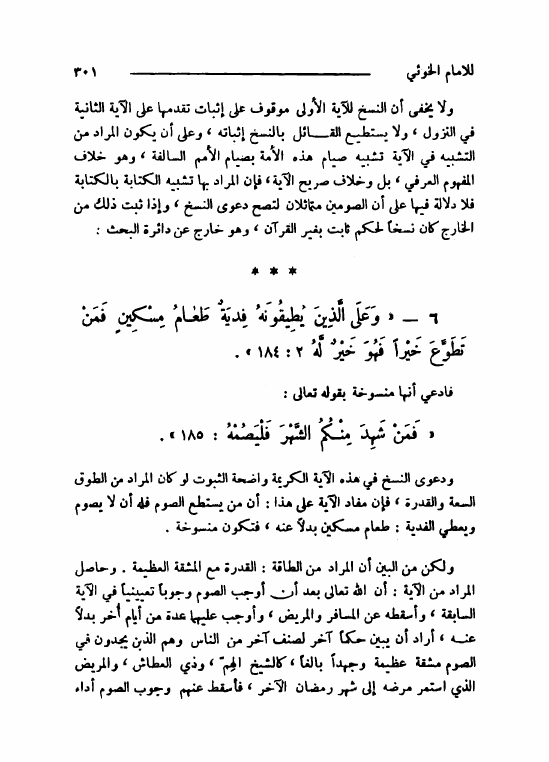 للامام الخوئي ٣٠١
ولا يخفى أن النسخ للآية الأولى موقوف على إثبات تقدمها على الآية الثانية
في النزول ، ولا يستطيع القـــائل بالنسخ إثباته ، وعلى أن يكون المراد من
التشبيه في الآية تشبيه صيام هذه الأمة بصيام الأمم السالفة ، وهو خلاف
المفهوم العرفي ، بل وخلاف صريح الآية، فإن المراد بها تشبيه الكتابة بالكتابة
فلا دلالة فيها على أن الصومين متماثلان لتصح دعوى النسخ ، وإذا ثبت ذلك من
الخارج كان نسخاً لحكم ثابت بغير القرآن ، وهو خارج عن دائرة البحث :
* * *
٦ ـ « وَعَلَى الَّذِينَ يُطِيقُونَهُ فِدْيَةٌ طَعَامُ مِسْكِينٍ فَمَنْ
تَطَوَّعَ خَيْراً فَهُوَ خَيْرٌ لَهُ ٢ : ١٨٤ » .
فادعي أنها منسوخة بقوله تعالى :
« فَمَنْ شَهِدَ مِنْكُمُ الشَّهْرَ فَلْيَصُمْهُ : ١٨٥ » .
ودعوى النسخ في هذه الآية الكريمة واضحة الثبوت لو كان المراد من الطوق
السعة والقدرة ، فإن مفاد الآية على هذا : أن من يستطع الصوم فله أن لا يصوم
ويعطي الفدية : طعام مسكين بدلاً عنه ، فتكون منسوخة .
ولكن من البين أن المراد من الطاقة : القدرة مع المشقة العظيمة . وحاصل
المراد من الآية : أن الله تعالى بعد أن أوجب الصوم وجوباً تعيينياً في الآية
السابقة ، وأسقطه عن المسافر والمريض ، وأوجب عليهما عدة من أيام أُخر بدلاً
عنـه ، أراد أن يبين حكماً آخر لصنف آخر من الناس وهم الذين يجدون في
الصوم مشقة عظيمة وجهداً بالغاً ، كالشيخ الهِمّ ، وذي العطاش ، والمريض
الذي استمر مرضه إلى شهر رمضان الآخر ، فأسقط عنهم وجوب الصوم أداء